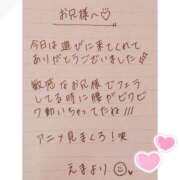 お兄様へ♡
今日は遊びに来てくれて
ありがとうございました
敏感なお兄様でフェラ
してる時に腰がビクビク
動いちゃってたね!!!
アニメ見まくろ!笑
えまより